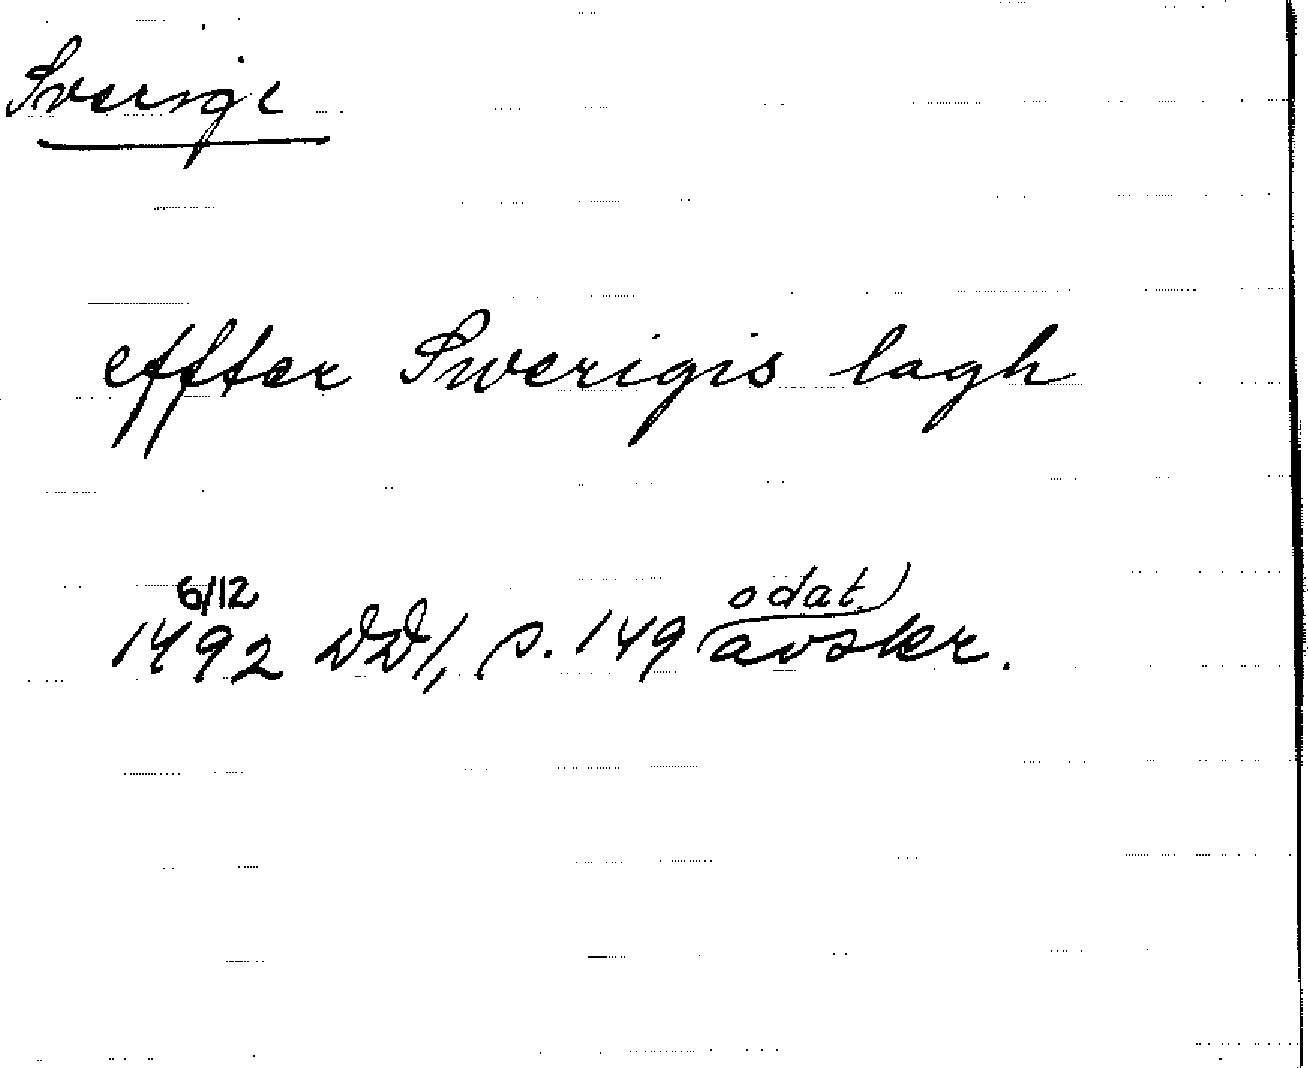 Sverige
effter Swerigis lagh
6/12
1492 DD1, s. 149 (odat.) avskr.